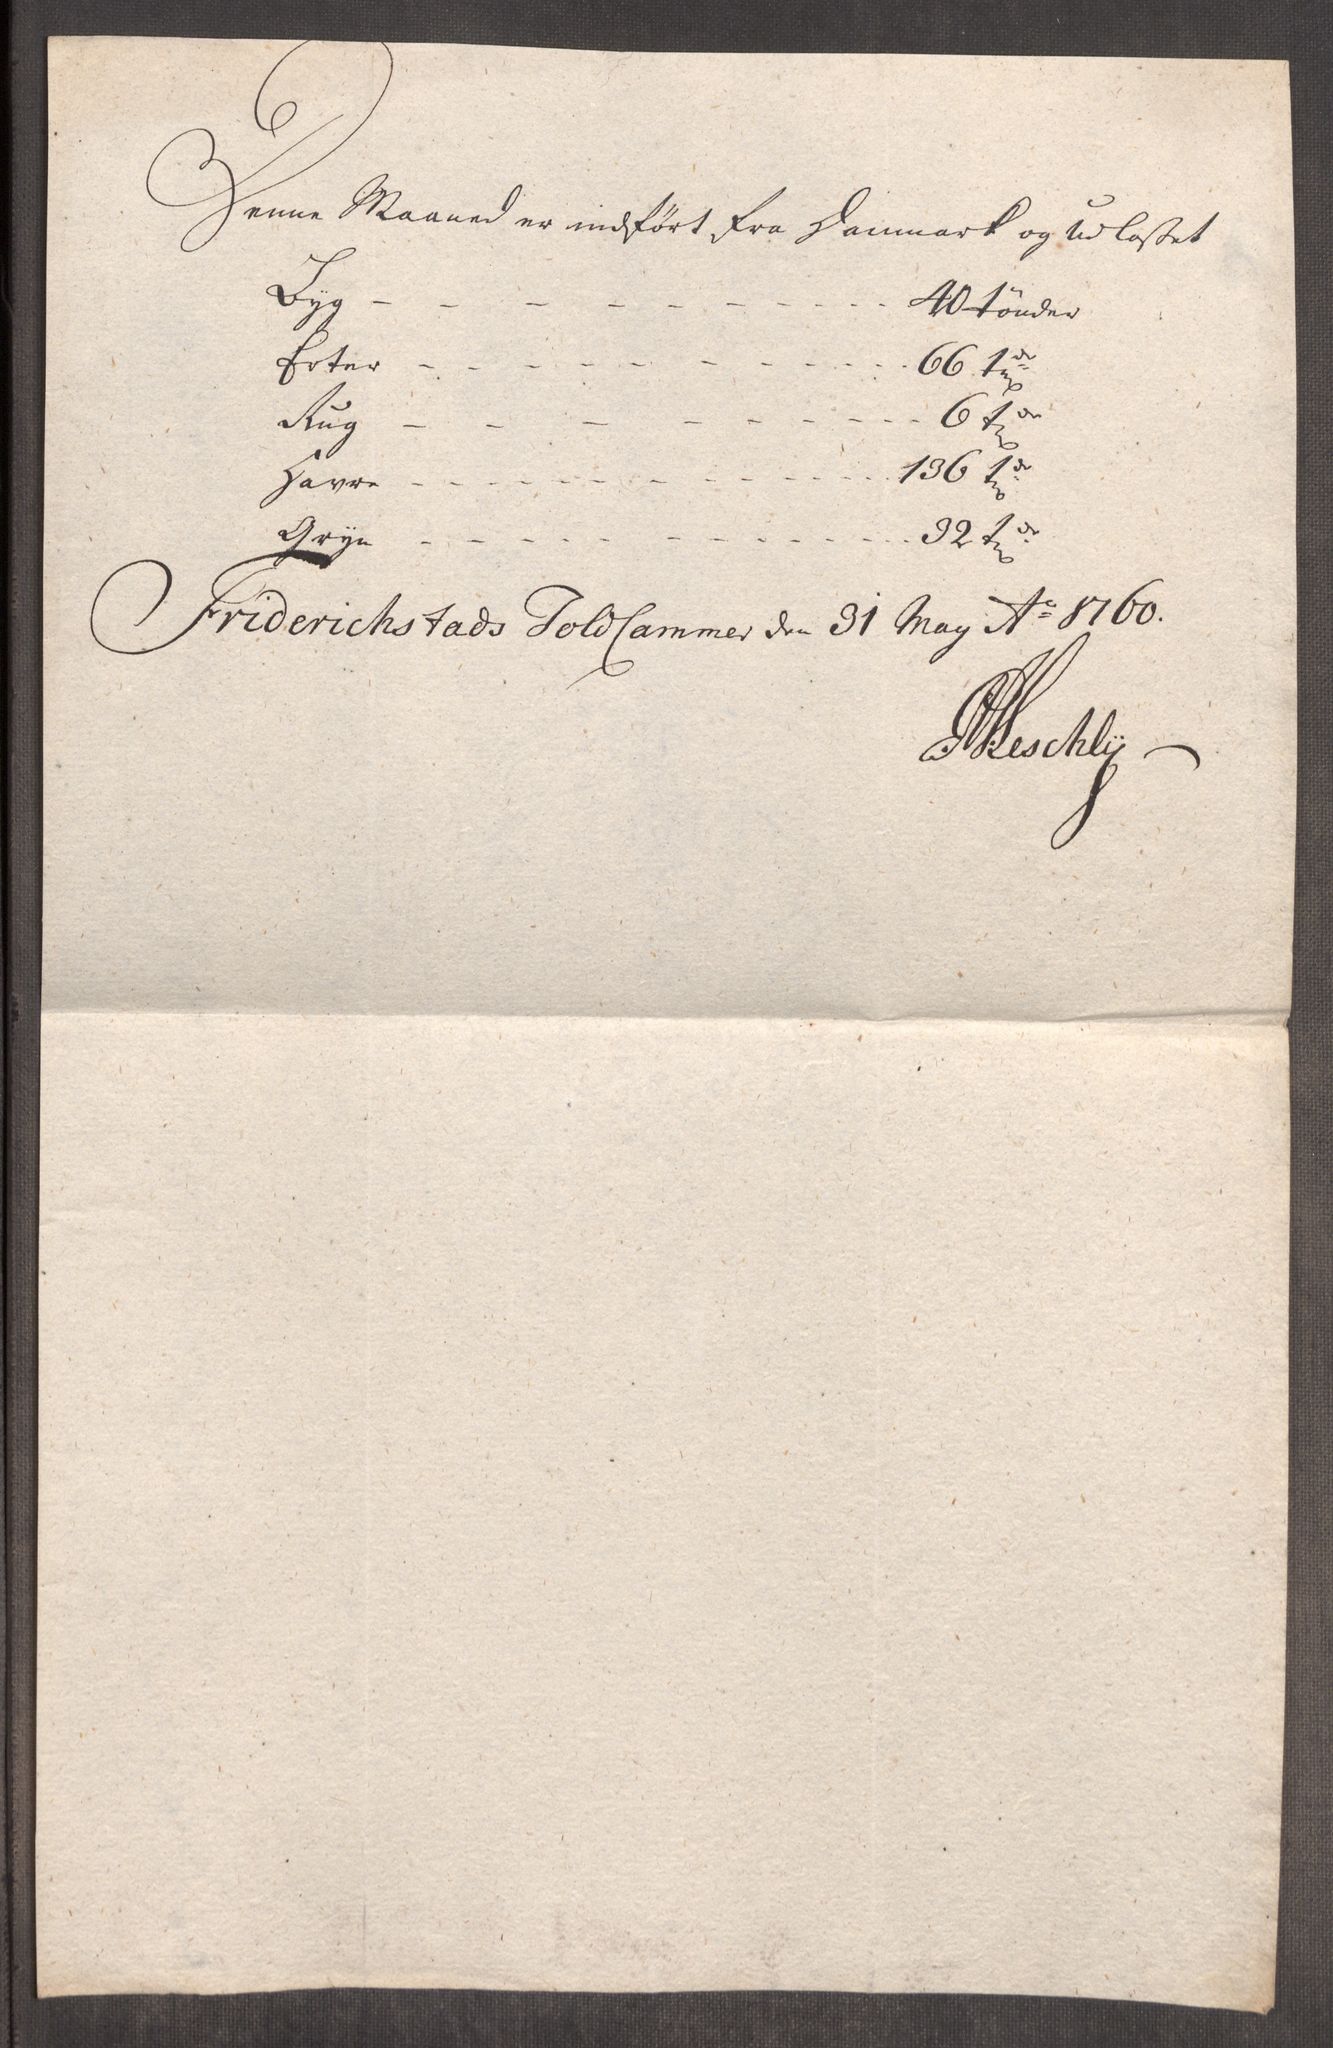 Denne Maaned er indført fra Danmark og udlosset
Byg - - - - - - - - - - 40 tønder
Erter - - - - - - - - - - 66 tdr
Rug - - - - - - - - - - 6 tdr
Havre - - - - - - - - - - 136 tdr
Gryn - - - - - - - - - - 32 tdr
Friderichstads Told Cammer den 31 May Ao 1760.